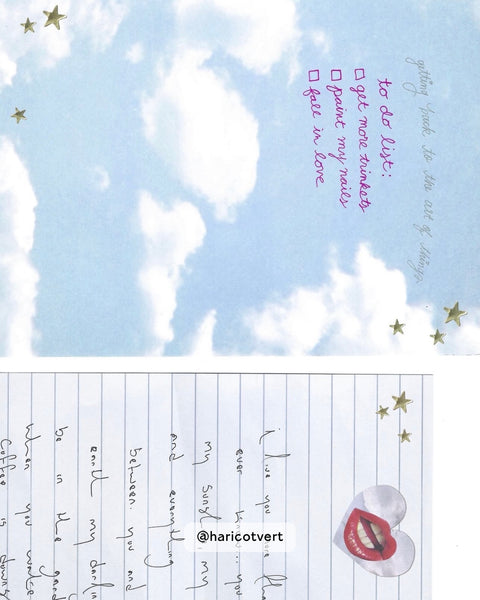 getting back to the art of things.
to do list:
get more trinkets
paint my nails
fall in love
i love you
ever know.. you
my my
and everything
between. you and
my
be in the
when you wake
coffee is
@haricotvert